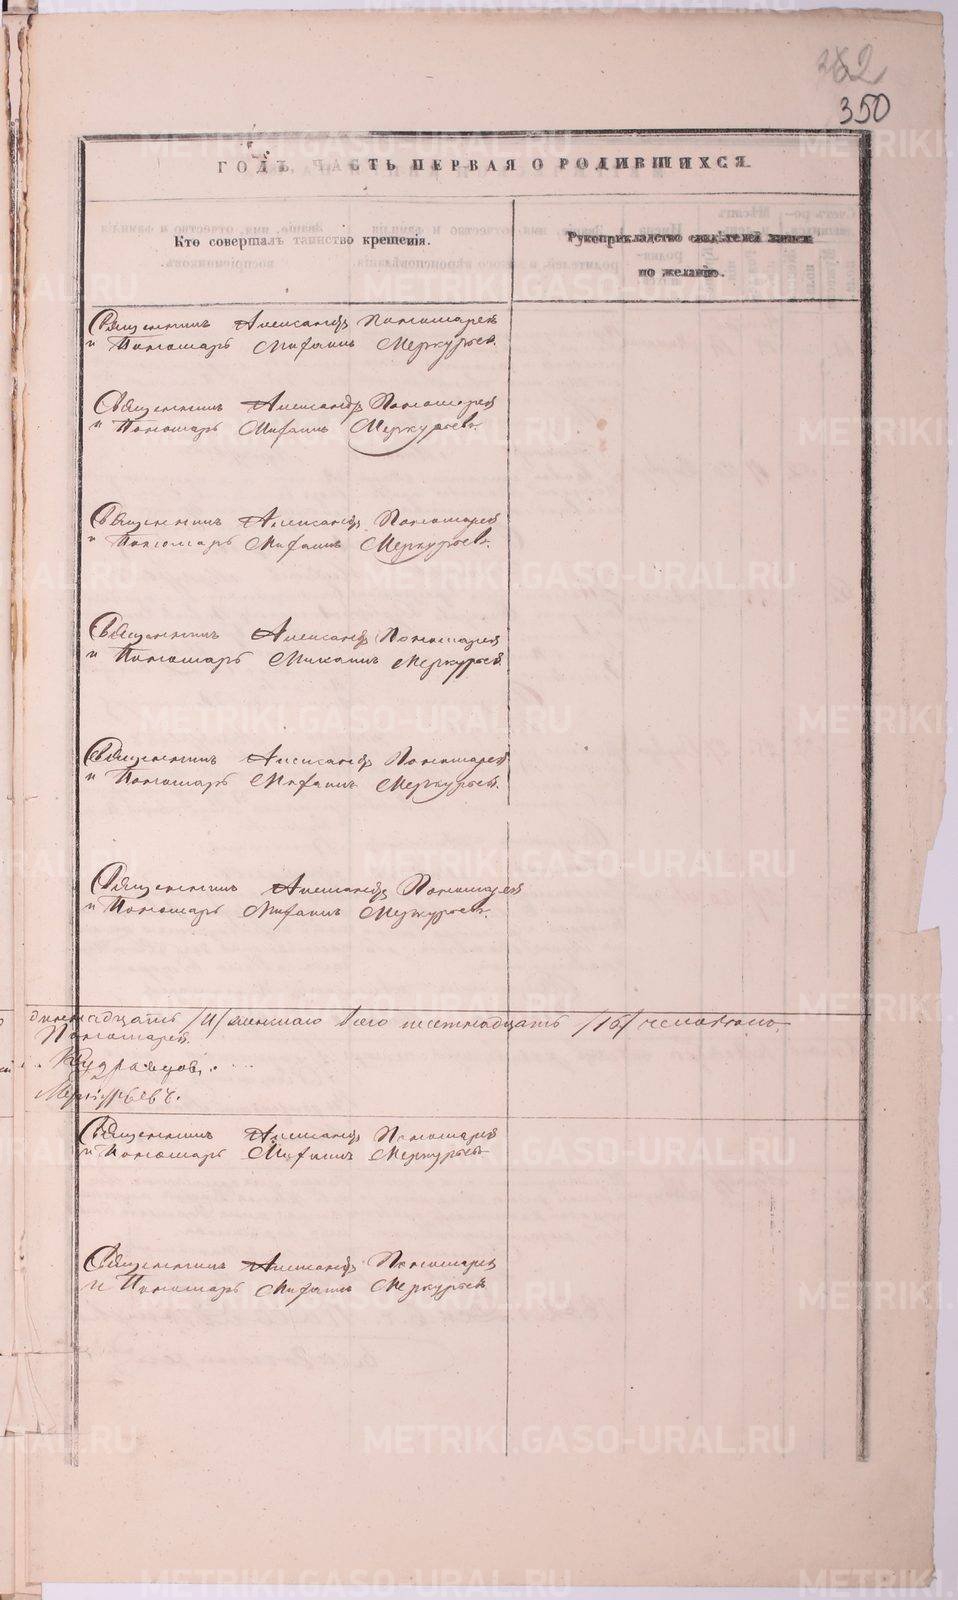 282
350
ГОДЪ, ЧАСТЬ ПЕРВАЯ О РОДИВШИХСЯ.
Кто совершалъ таинство крещенія.
Рукоприкладство свидѣтелей записи
по желанію.
Священникъ Александръ Пономаревъ
и Пономарь Михаилъ Меркурьевъ.
Священникъ Александръ Пономаревъ
и Пономарь Михаилъ Меркурьевъ.
Священникъ Александръ Пономаревъ
и Пономарь Михаилъ Меркурьевъ.
Священникъ Александръ Пономаревъ
и Пономарь Михаилъ Меркурьевъ.
Священникъ Александръ Пономаревъ
и Пономарь Михаилъ Меркурьевъ.
Священникъ Александръ Пономаревъ
и Пономарь Михаилъ Меркурьевъ.
/11/ женскаго всего шестнадцать /16/ человѣкъ.
Пономаревъ.
Кудрявцовъ.
Меркурьевъ.
Священникъ Александръ Пономаревъ
и Пономарь Михаилъ Меркурьевъ
Священникъ Александръ Пономаревъ
и Пономарь Михаилъ Меркурьевъ
METRIKI.GASO-URAL.RU